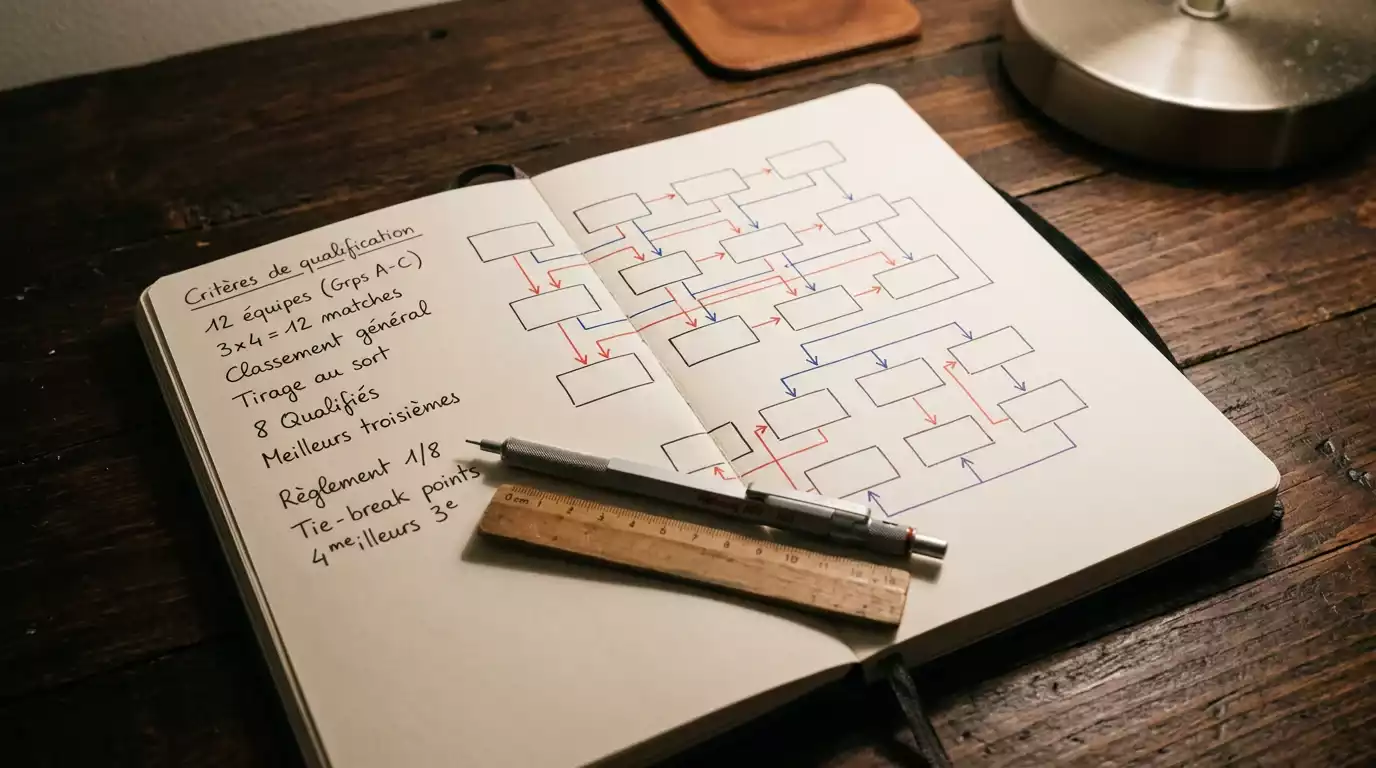 Critères de qualification
12 équipes (Grps A-C)
3x4 = 12 matches
Classement général
Tirage au sort
8 Qualifiés
Meilleurs troisièmes
Règlement 1/8
Tie-break points
4 meilleurs 3e
0cm 1 2 3 4 5 6 7 8 9 10 11